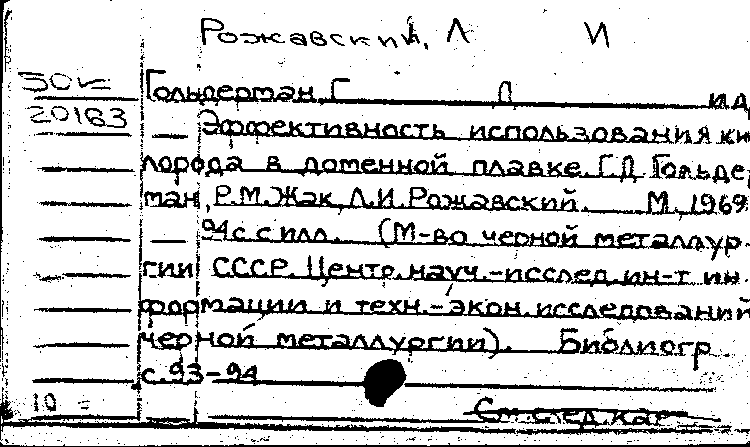 Рожавский, Л И
50к
20163
Гольдерман, Г Д и д
Эффективность использования ки
лорода в доменной плавке. Г.Д. Гольде
ман, Р.М. Жак, Л.И. Рожавский. М., 1969.
94 с. с илл. (М-во черной металлур
гии СССР. Центр. науч.-исслед. ин-т ин
формации и техн.-экон. исследований
черной металлургии). Библиогр.
с. 93-94
10
См. след. кар